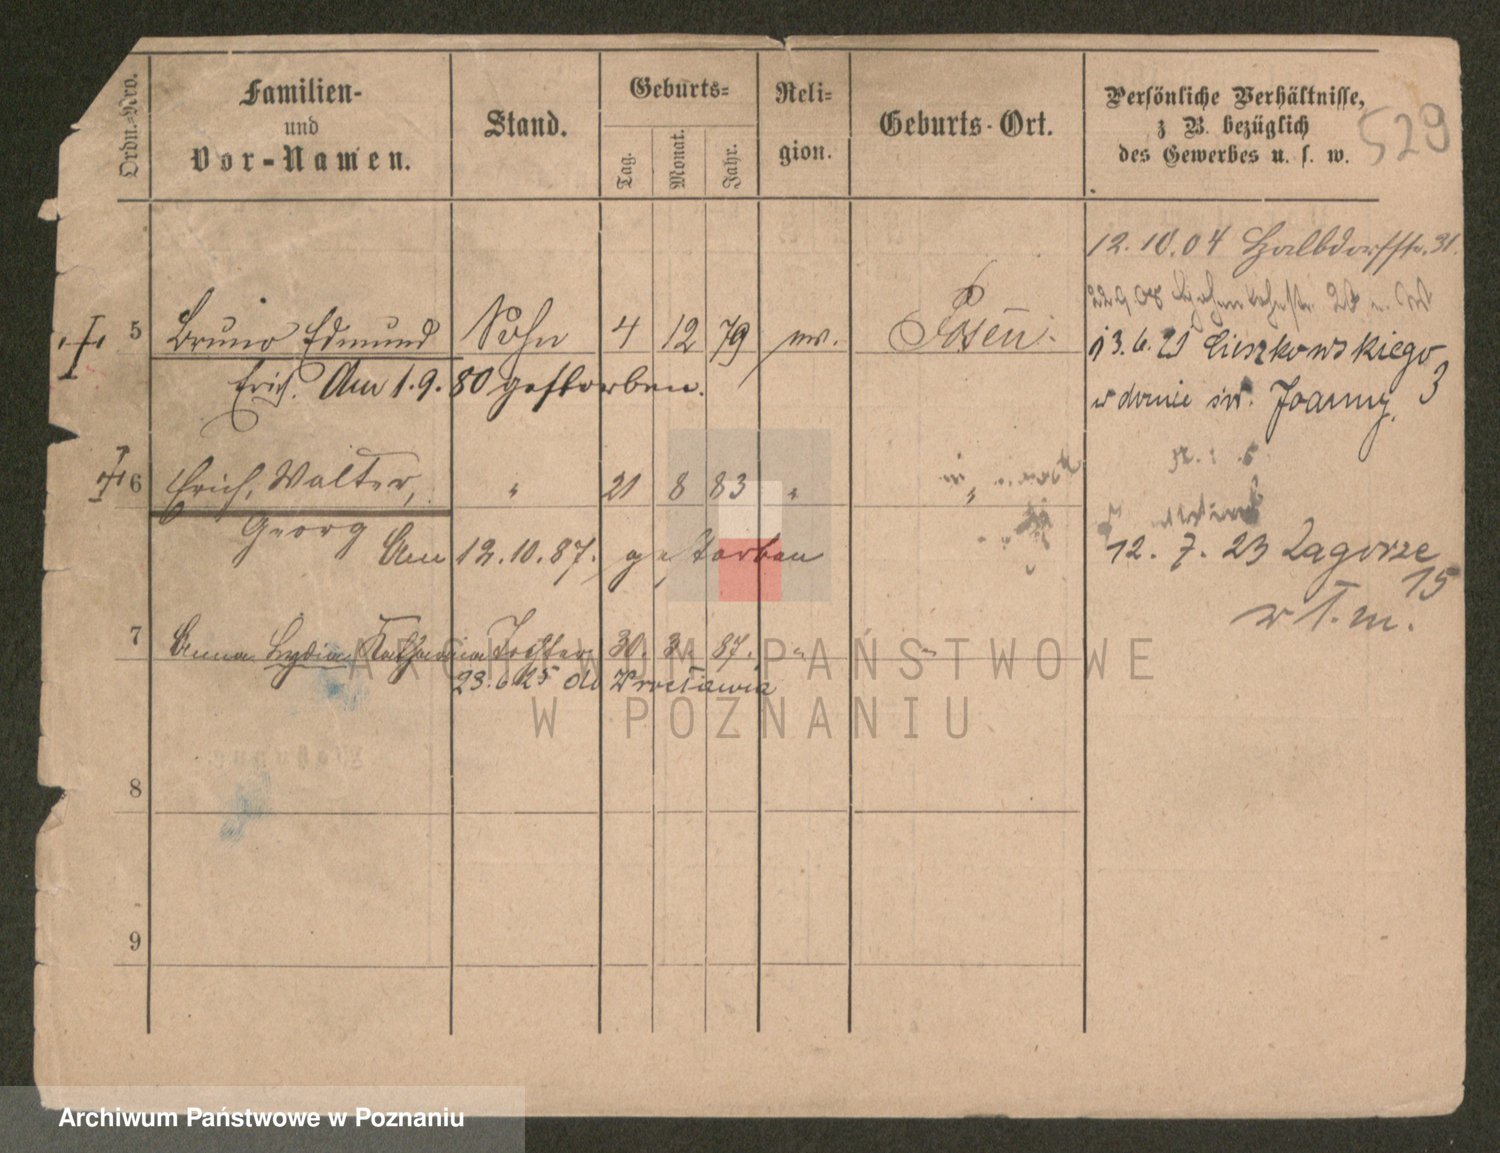 Ordn.-Nro.
Familien-
und
Vor-Namen.
Stand.
Geburts-
Tag.
Monat.
Jahr.
Reli-
gion.
Geburts-Ort.
Persönliche Verhältnisse,
z B. bezüglich
des Gewerbes u. s. w.
529
12.10.04 Halbdorfstr. 31.
5 Bruno Edmund Sohn 4 12 79 ev. Posen.
Erich. Am 1.9.80 gestorben.
13.6.21 Cieszkowskiego
w domie św. Joanny, 3
6 Erich, Walter, " 21 8 83 " "
Georg
Am 12.10.87. gestorben
12. 7. 23 Zagórze
15
w T. m.
7 Anna Lydia Katharina Tochter 30. 3. 87. " "
23.6.25 do Wrocławia
8
9
ARCHIWUM PAŃSTWOWE
W POZNANIU
Archiwum Państwowe w Poznaniu